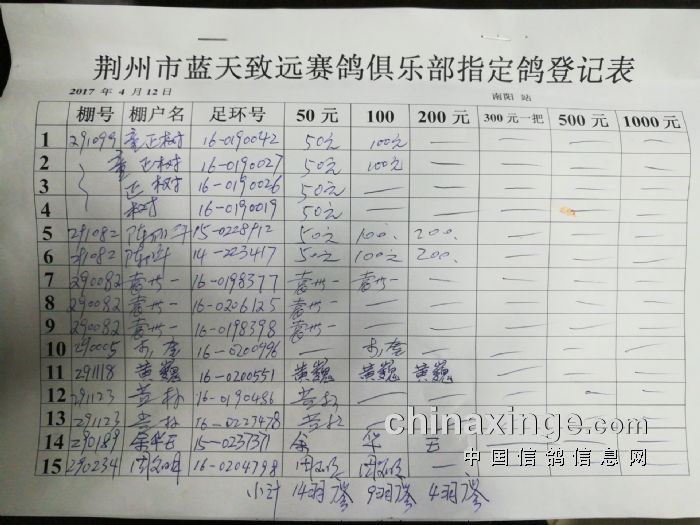 荆州市蓝天致远赛鸽俱乐部指定鸽登记表
2017 年 4 月 12 日 南阳 站
棚号 棚户名 足环号 50 元 100 200 元 300 元一把 500 元 1000 元
1 291099 童正树 16-0190042 50元 100元 — — — —
2 童正树 16-0190027 50元 100元 — — — —
3 正树 16-0190026 50元 — — — — —
4 树 16-0190019 50元 — — — — —
5 291082 15-0228912 50元 100. 200. — — —
6 291082 14-223417 50元 100元 200. — — —
7 290082 袁世一 16-0198377 袁世一 袁世一 — — — —
8 290082 袁世一 16-0206125 袁世一 — — — — —
9 290082 袁世一 16-0198398 袁世一 — — — — —
10 290005 16-0200996 — — — — —
11 291118 黄巍 16-0200551 黄巍 黄巍 黄巍 — — —
12 291123 16-0190486 — — — — —
13 291123 16-0227478 — — — — —
14 290189 余华玉 15-0237371 余 华 玉 — — —
15 290234 16-0204798 — — — —
小计 14羽 9羽 4羽
chinaxinge.com
中国信鸽信息网